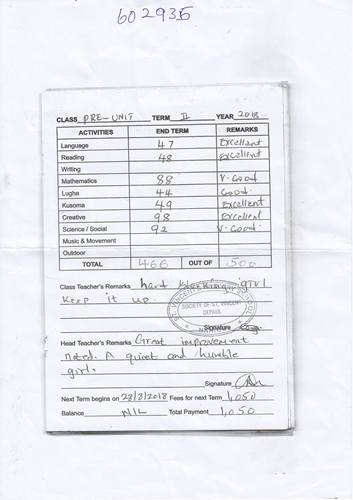 602935
CLASS PRE-UNIT TERM II YEAR 2018
ACTIVITIES END TERM REMARKS
Language 47 Excellent
Reading 48 Excellent
Writing
Mathematics 88 V. Good
Lugha 44 Good.
Kusoma 49 Excellent
Creative 98 Excellent
Science / Social 92 V. Good.
Music & Movement
Outdoor
TOTAL 466 OUT OF 500
Class Teacher's Remarks hard working girl
Keep it up.
SOCIETY OF ST. VINCENT
DEPAUL
Signature
Head Teacher's Remarks Great improvement
noted. A quiet and humble
girl.
Signature
Next Term begins on 28/8/2018 Fees for next Term 1,050
Balance NIL Total Payment 1,050